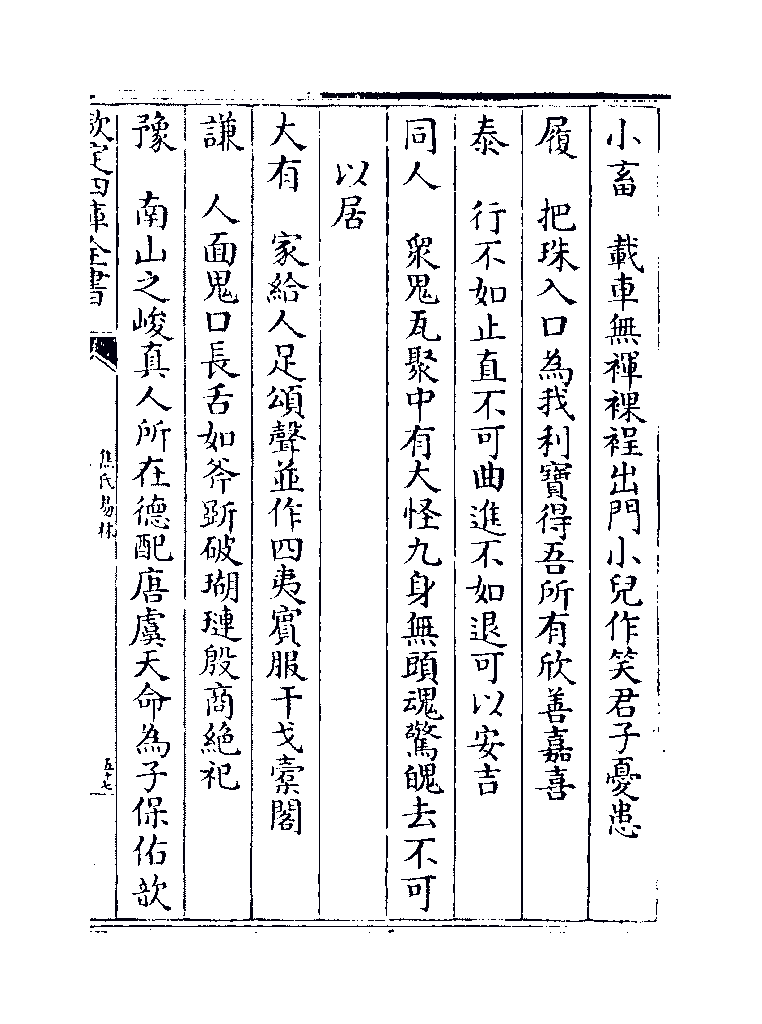 小畜　載車無褌裸裎出門小兒作笑君子憂患
履　把珠入口為我利寶得吾所有欣善嘉喜
泰　行不如止直不可曲進不如退可以安吉
同人　衆鬼瓦聚中有大怪九身無頭魂驚魄去不可
以居
大有　家給人足頌聲並作四夷賓服干戈櫜閣
謙　人面鬼口長舌如斧斲破瑚璉殷商絶祀
豫　南山之峻真人所在德配唐虞天命為子保佑歆
欽定四庫全書
焦氏易林
五十七